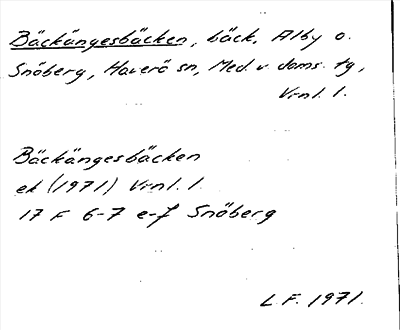 Bäckängesbäcken, bäck, Alby o.
Snöberg, Haverö sn, Med. v doms. tg,
Vrnl. l.
Bäckängesbäcken
ek (1971) Vrnl. l.
17 F 6-7 e-f Snöberg
L.F. 1971.